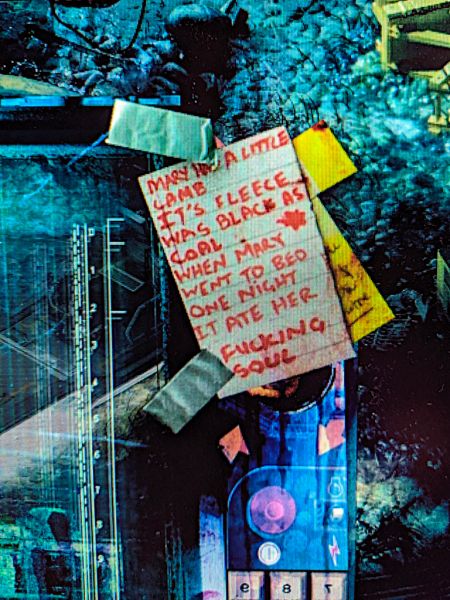 MARY HAD A LITTLE
LAMB
IT'S FLEECE
WAS BLACK AS
COAL
WHEN MARY
WENT TO BED
ONE NIGHT
IT ATE HER
FUCKING
SOUL